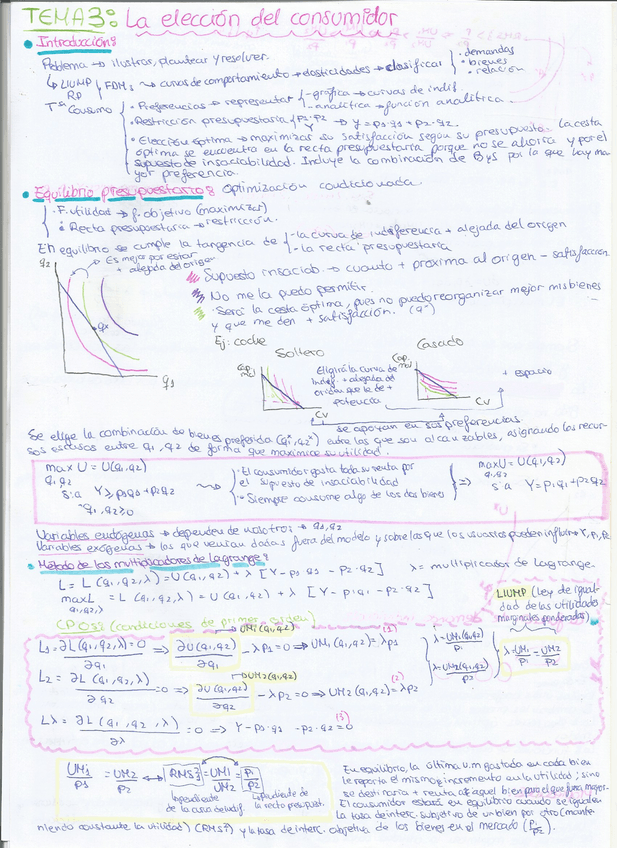 TEMA 3: La elección del consumidor
• Introducción:
Problema → ilustrar, plantear y resolver.
↳ LIUMP → FDMs → curvas de comportamiento → elasticidades → clasificar { · demandas
· bienes
· relación
RP
Tª Consumo { • Preferencias → representar { - gráfica → curvas de indif.
- analítica → función analítica.
• Restricción presupuestaria { p1·p2 Y → y = p1·q1 + p2·q2.
• Elección óptima → maximizar su satisfacción según su presupuesto. La cesta
óptima se encuentra en la recta presupuestaria porque no se ahorra y por el
supuesto de insaciabilidad. Incluye la combinación de ByS por la que hay ma
yor preferencia.
• Equilibrio presupuestario: optimización condicionada.
{ · F. utilidad → f. objetivo (maximizar)
· Recta presupuestaria → restricción.
En equilibrio se cumple la tangencia de { - la curva de indiferencia + alejada del origen
- la recta presupuestaria
q2
Es mejor por estar
+ alejada del origen
Supuesto insaciab. → cuanto + próxima al origen - satisfacción
No me la puedo permitir.
· Será la cesta óptima, pues no puedo reorganizar mejor mis bienes
y que me den + satisfacción. (q*)
q*
q1
Ej: coche
Soltero
Casado
Elegirá la curva de
indif. + alejada del
origen que le de +
potencia
+ espacio
CV
CV
se apoyan en sus preferencias
Se elige la combinación de bienes preferida (q1*, q2*) entre las que son alcanzables, asignando los recur-
sos escasos entre q1, q2 de forma que maximice su utilidad.
max U = U(q1, q2)
q1, q2
s.a Y ≥ p1q1 + p2q2
q1, q2 ≥ 0
{ · El consumidor gasta toda su renta por
el supuesto de insaciabilidad
· Siempre consume algo de los dos bienes
} ⇒ max U = U(q1, q2)
q1, q2
s.a Y = p1q1 + p2q2
Variables endógenas → dependen de nosotros → q1, q2
Variables exógenas → los que venían dadas fuera del modelo y sobre las que los usuarios pueden influir → Y, p1, p2
• Método de los multiplicadores de Lagrange:
L = L (q1, q2, λ) = U(q1, q2) + λ [Y - p1·q1 - p2·q2]
λ = multiplicador de Lagrange.
max L = L (q1, q2, λ) = U(q1, q2) + λ [Y - p1·q1 - p2·q2]
q1, q2, λ
LIUMP (Ley de igual-
dad de las utilidades
marginales ponderadas)
CPOs: (condiciones de primer orden)
L1 = ∂L(q1, q2, λ)/∂q1 = 0 ⇒ ∂U(q1, q2)/∂q1 - λp1 = 0 ⇒ UM1(q1, q2) = λp1 (1)
UM1(q1, q2)
L2 = ∂L(q1, q2, λ)/∂q2 = 0 ⇒ ∂U(q1, q2)/∂q2 - λp2 = 0 ⇒ UM2(q1, q2) = λp2 (2)
UM2(q1, q2)
λ = UM1(q1, q2)/p1
λ = UM2(q1, q2)/p2
λ = UM1/p1 = UM2/p2
Lλ = ∂L(q1, q2, λ)/∂λ = 0 ⇒ Y - p1·q1 - p2·q2 = 0 (3)
UM1/p1 = UM2/p2 ↔ RMS = UM1/UM2 = p1/p2
la pendiente
de la curva de indif.
la pendiente de
la recta presupuest.
En equilibrio, la última u.m gastada en cada bien
le reporta el mismo incremento en la utilidad; sino
se destinaría + renta a aquel bien por el que fuera mayor.
El consumidor estará en equilibrio cuando se igualen
la tasa de interc. subjetiva de un bien por otro (mante-
niendo constante la utilidad) (RMS) y la tasa de interc. objetiva de los bienes en el mercado (p1/p2).